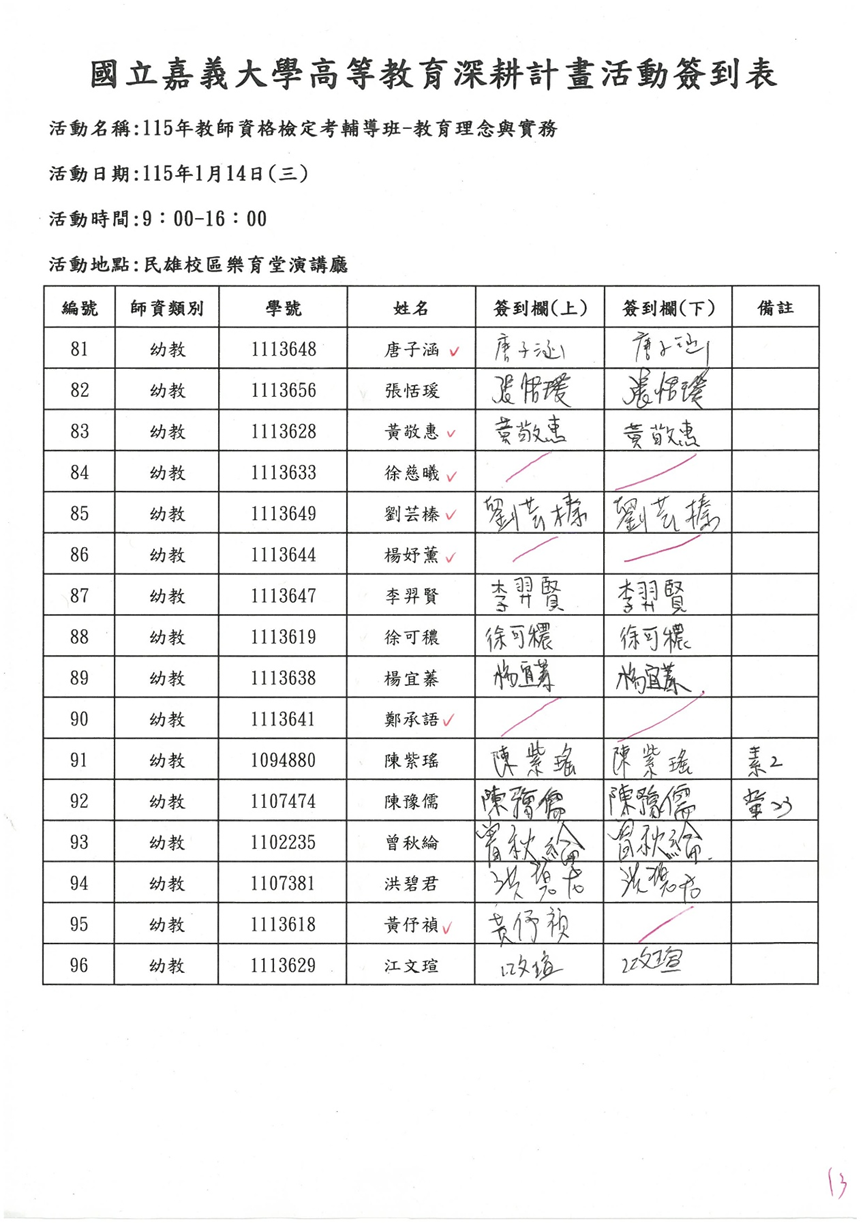 國立嘉義大學高等教育深耕計畫活動簽到表
活動名稱:115年教師資格檢定考輔導班-教育理念與實務
活動日期:115年1月14日(三)
活動時間:9:00-16:00
活動地點:民雄校區樂育堂演講廳
編號 師資類別 學號 姓名 簽到欄(上) 簽到欄(下) 備註
81 幼教 1113648 唐子涵 ✓ 唐子涵 唐子涵
82 幼教 1113656 張恬瑗 張恬瑗 張恬瑗
83 幼教 1113628 黃敬惠 ✓ 黃敬惠 黃敬惠
84 幼教 1113633 徐慈曦 ✓ / /
85 幼教 1113649 劉芸榛 ✓ 劉芸榛 劉芸榛
86 幼教 1113644 楊妤薰 ✓ / /
87 幼教 1113647 李羿賢 李羿賢 李羿賢
88 幼教 1113619 徐可穠 徐可穠 徐可穠
89 幼教 1113638 楊宜蓁 楊宜蓁 楊宜蓁
90 幼教 1113641 鄭承語 ✓ / /
91 幼教 1094880 陳紫瑤 陳紫瑤 陳紫瑤 素2
92 幼教 1107474 陳豫儒 陳豫儒 陳豫儒
93 幼教 1102235 曾秋綸 曾秋綸 曾秋綸
94 幼教 1107381 洪碧君 洪碧君 洪碧君
95 幼教 1113618 黃伃禎 ✓ 黃伃禎 /
96 幼教 1113629 江文瑄 江文瑄 江文瑄
13